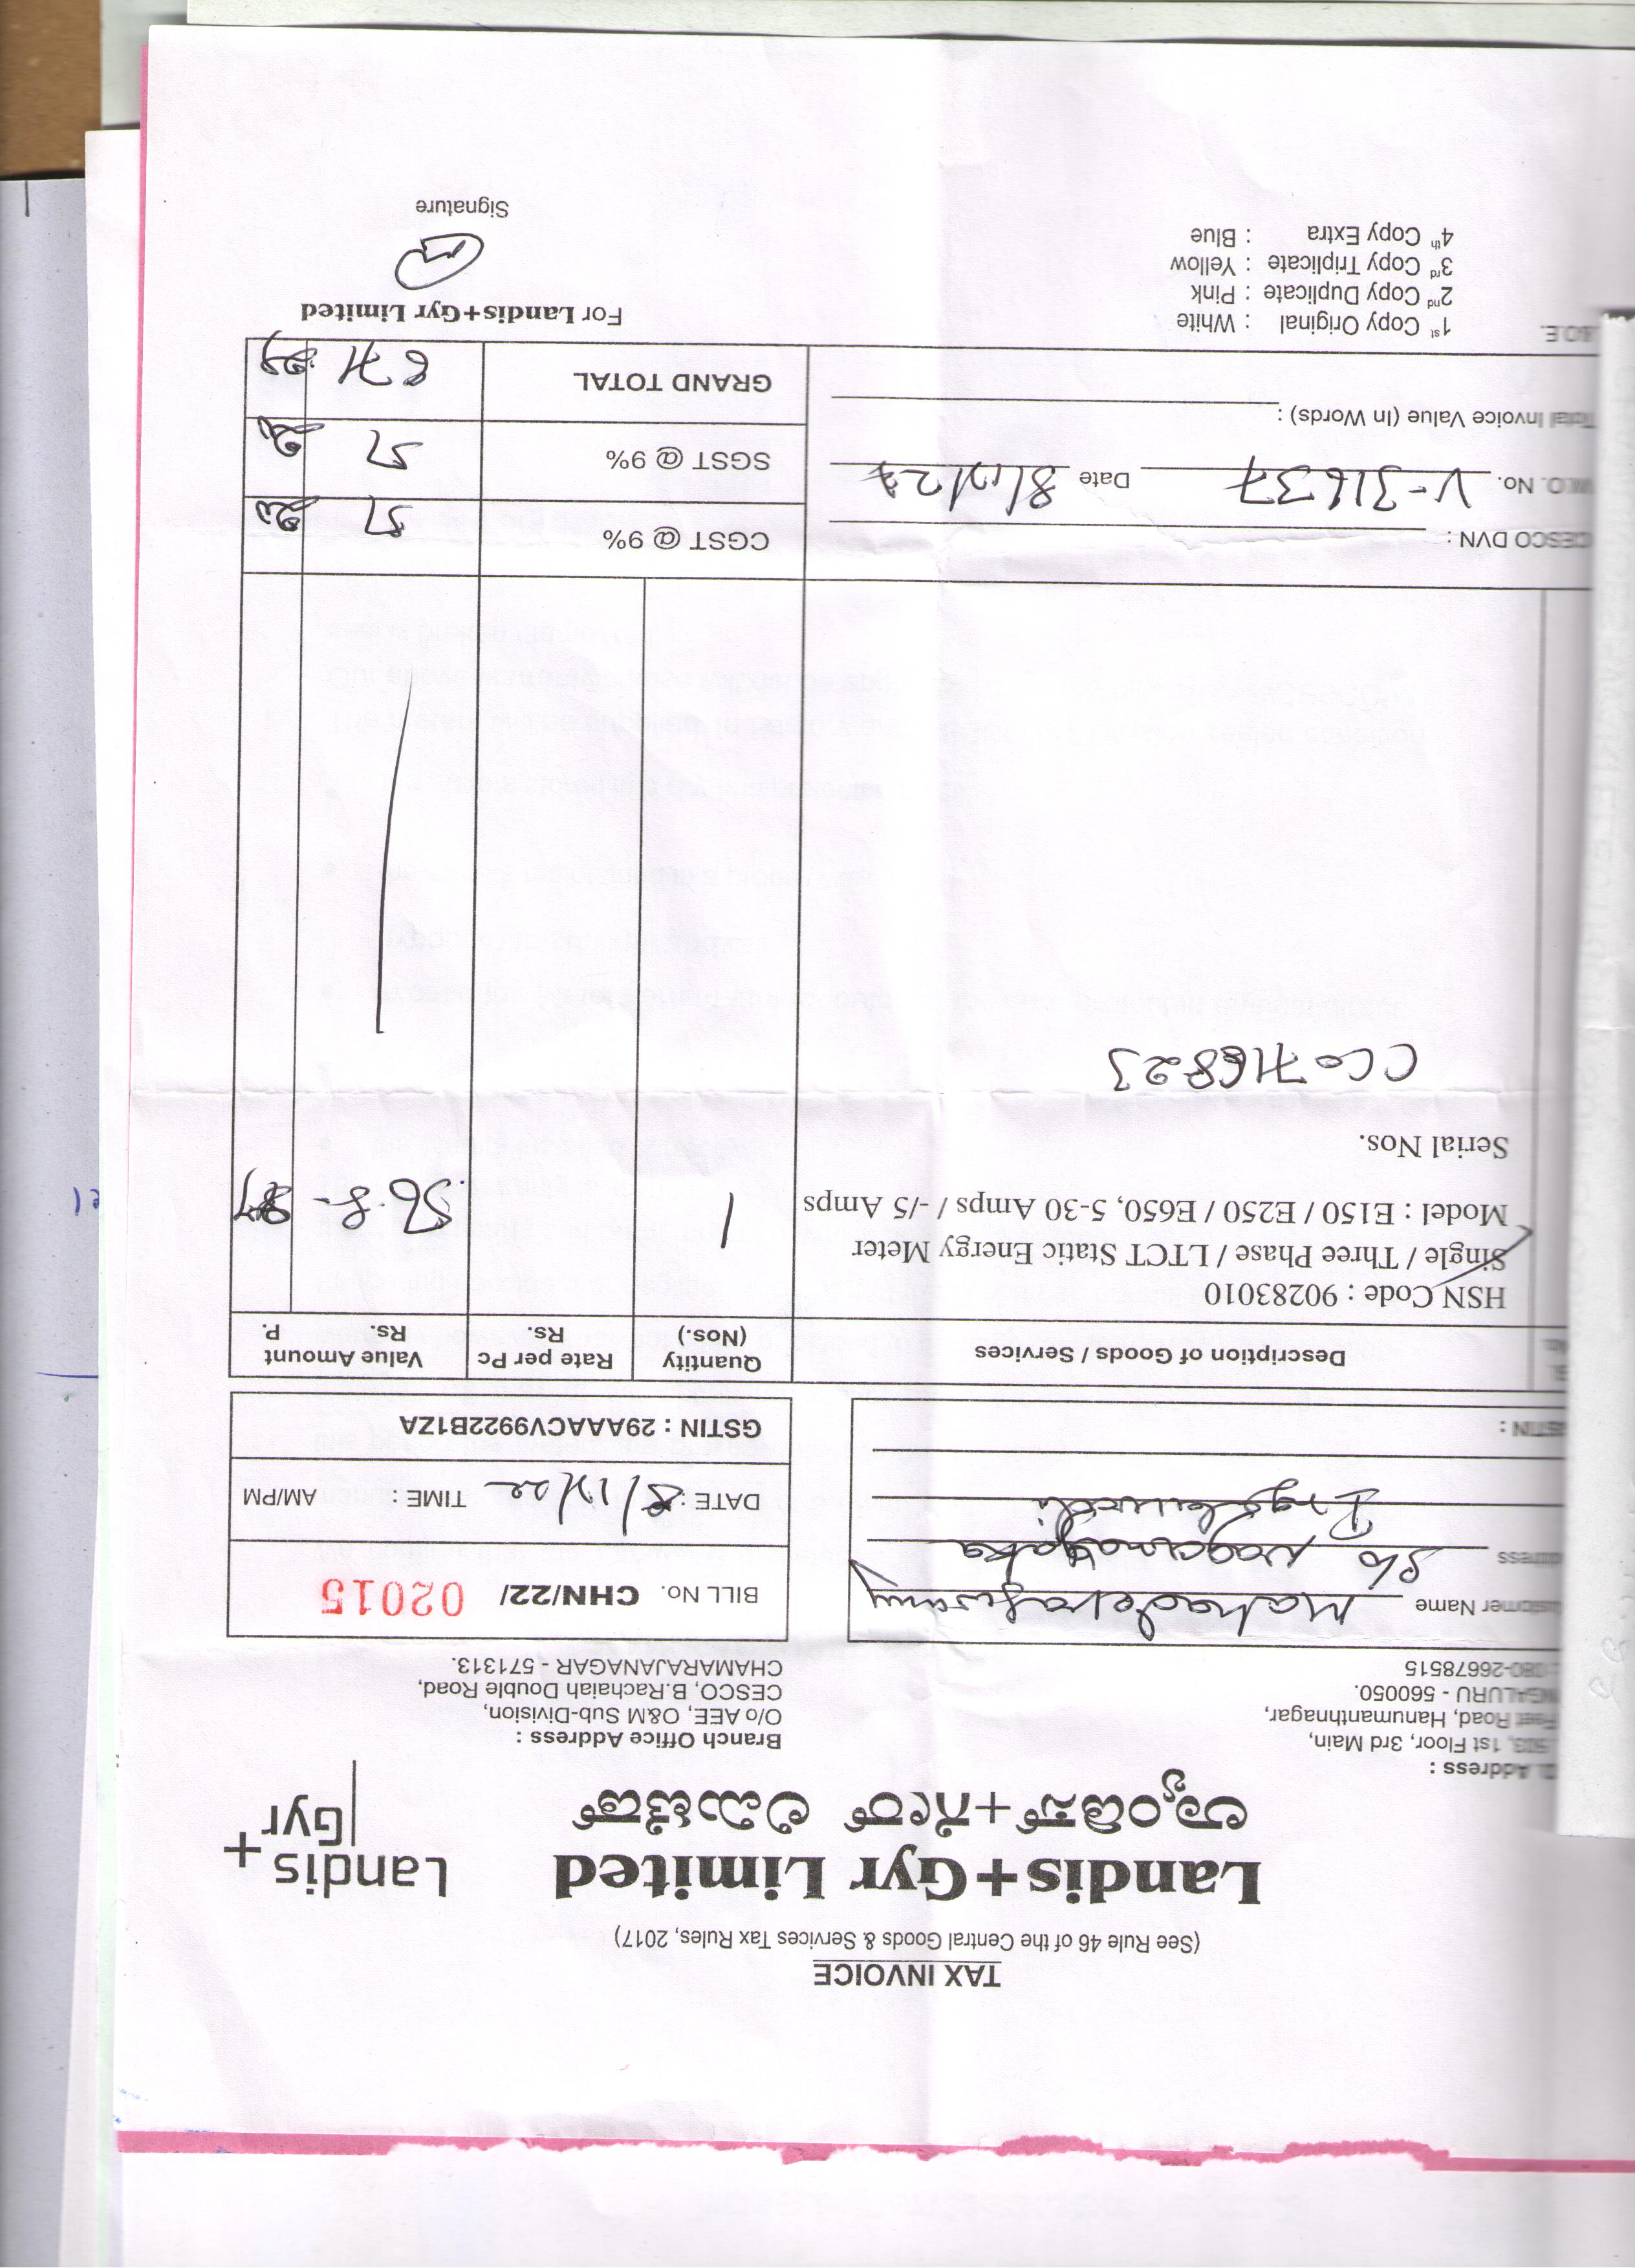 TAX INVOICE
(See Rule 46 of the Central Goods & Services Tax Rules, 2017)
Landis+Gyr Limited
ಲ್ಯಾಂಡಿಸ್+ಗೀರ್ ಲಿಮಿಟೆಡ್
Landis+
Gyr
Address :
1st Floor, 3rd Main,
Road, Hanumanthnagar,
- 560050.
080-26678515
Branch Office Address :
O/o AEE, O&M Sub-Division,
CESCO, B.Rachaiah Double Road,
CHAMARAJANAGAR - 571313.
Name Mahadevaswamy
S/o Naganayaka
GSTIN :
BILL No. CHN/22/ 02015
DATE : 8/12/22 TIME : AM/PM
GSTIN : 29AAACV9922B1ZA
Description of Goods / Services
Quantity (Nos.)
Rate per Pc Rs.
Value Amount Rs. P.
HSN Code : 90283010
Single / Three Phase / LTCT Static Energy Meter
Model : E150 / E250 / E650, 5-30 Amps / -/5 Amps
1 568-
Serial Nos.
CC0716823
CESCO DVN :
No. V-31637 Date 8/12/22
Total Invoice Value (In Words) :
CGST @ 9% 51 20
SGST @ 9% 51 20
GRAND TOTAL 671
1st Copy Original : White
2nd Copy Duplicate : Pink
3rd Copy Triplicate : Yellow
4th Copy Extra : Blue
For Landis+Gyr Limited
Signature